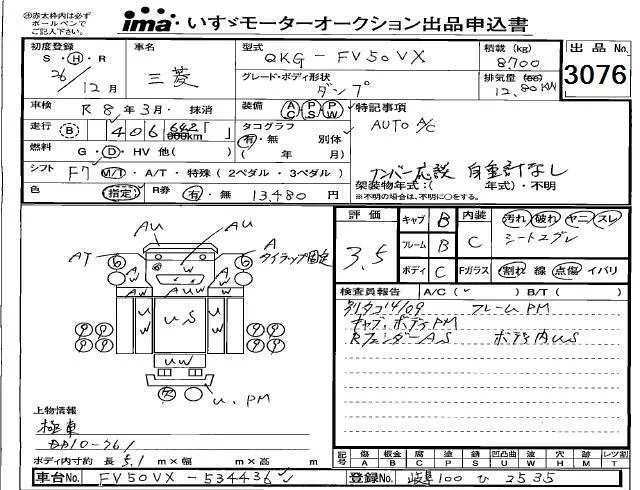 ㊟赤太枠内は必ず
ボールペンで
ご記入下さい。
ima いすゞモーターオークション出品申込書
初度登録 S・H・R 26/12月
車名 三菱
型式 QKG-FV50VX
積載(kg) 8,700
出品No. 3076
グレード・ボディ形状 ダンプ
排気量(cc) 12,80 KW
車検 R8年3月・抹消
装備 AC PS PW
特記事項
AUTO A/C
走行 B 406,642
タコグラフ 有・無 別体
(年 月)
燃料 G・D・HV 他( )
シフト F7 M/T・A/T・特殊(2ペダル・3ペダル)
ナンバー応談 自重計なし
架装物年式:( 年式)・不明
※不明の場合は、不明に○をする。
色 (指定) R券 有・無 13,480円
評価 3.5
キャブ B
フレーム B
ボディ C
内装 C
汚れ 破れ ヤニ スレ
シート2グレ
Fガラス 割れ 線 点傷 イバリ
AU
AT
A
タイラップ固定
U
W
AUW
US
UW
U、PM
検査員報告 A/C( ✓ ) B/T( )
別タコ14/09 フレームPM
キャブ、ボディPM
RフェンダーAS ボディ内US
上物情報
極東
DD10-261
ボディ内寸約 長 5.1 m×幅 m×高 m
記号 傷A 板金B 腐C 塗P 錆S 凹凸曲U 波W 穴H 欠M レツ割T
車台No. FV50VX-534436
登録No. 岐阜100 ひ 2535